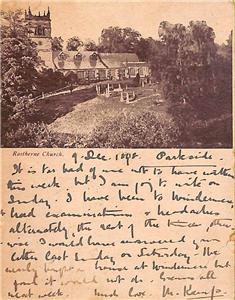 Rostherne Church.
9 Dec. 1898. Parkside.
It is too bad of me not to have written
this week, but I am going to write on
Sunday. I have been to Windermere,
& had examinations & headaches
alternately, the rest of the time, else
I would have answered your
letter last Sunday or Saturday. We
nearly bought a house at Windermere but
it would not do. Exams all
next week. much love M. Kemp.